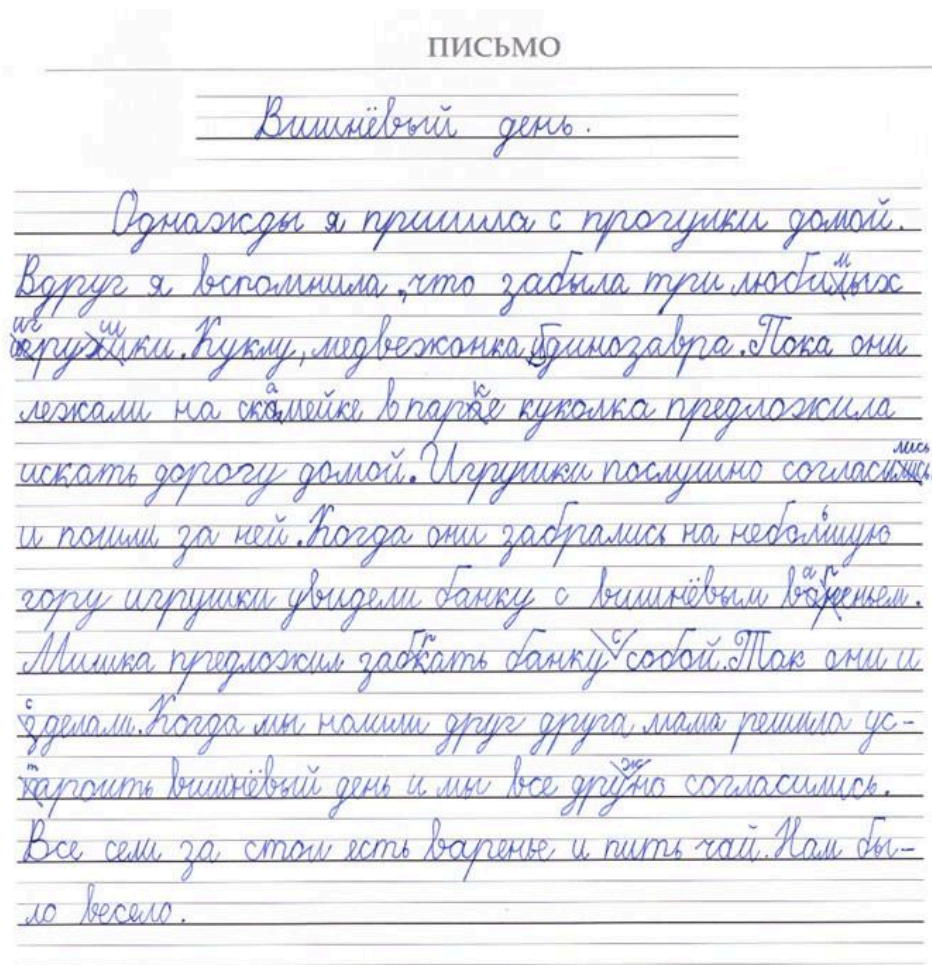 ПИСЬМО
Вишнёвый день.
Однажды я пришла с прогулки домой.
Вдруг я вспомнила, что забыла три любимых
игрушки. Куклу, медвежонка, динозавра. Пока они
лежали на скамейке в парке куколка предложила
искать дорогу домой. Игрушки послушно согласились
и пошли за ней. Когда они забрались на небольшую
гору игрушки увидели банку с вишнёвым вареньем.
Мишка предложил забрать банку с собой. Так они и
сделали. Когда мы нашли друг друга мама решила ус-
тароить вишнёвый день и мы все дружно согласились.
Все сели за стол есть варенье и пить чай. Нам бы-
ло весело.